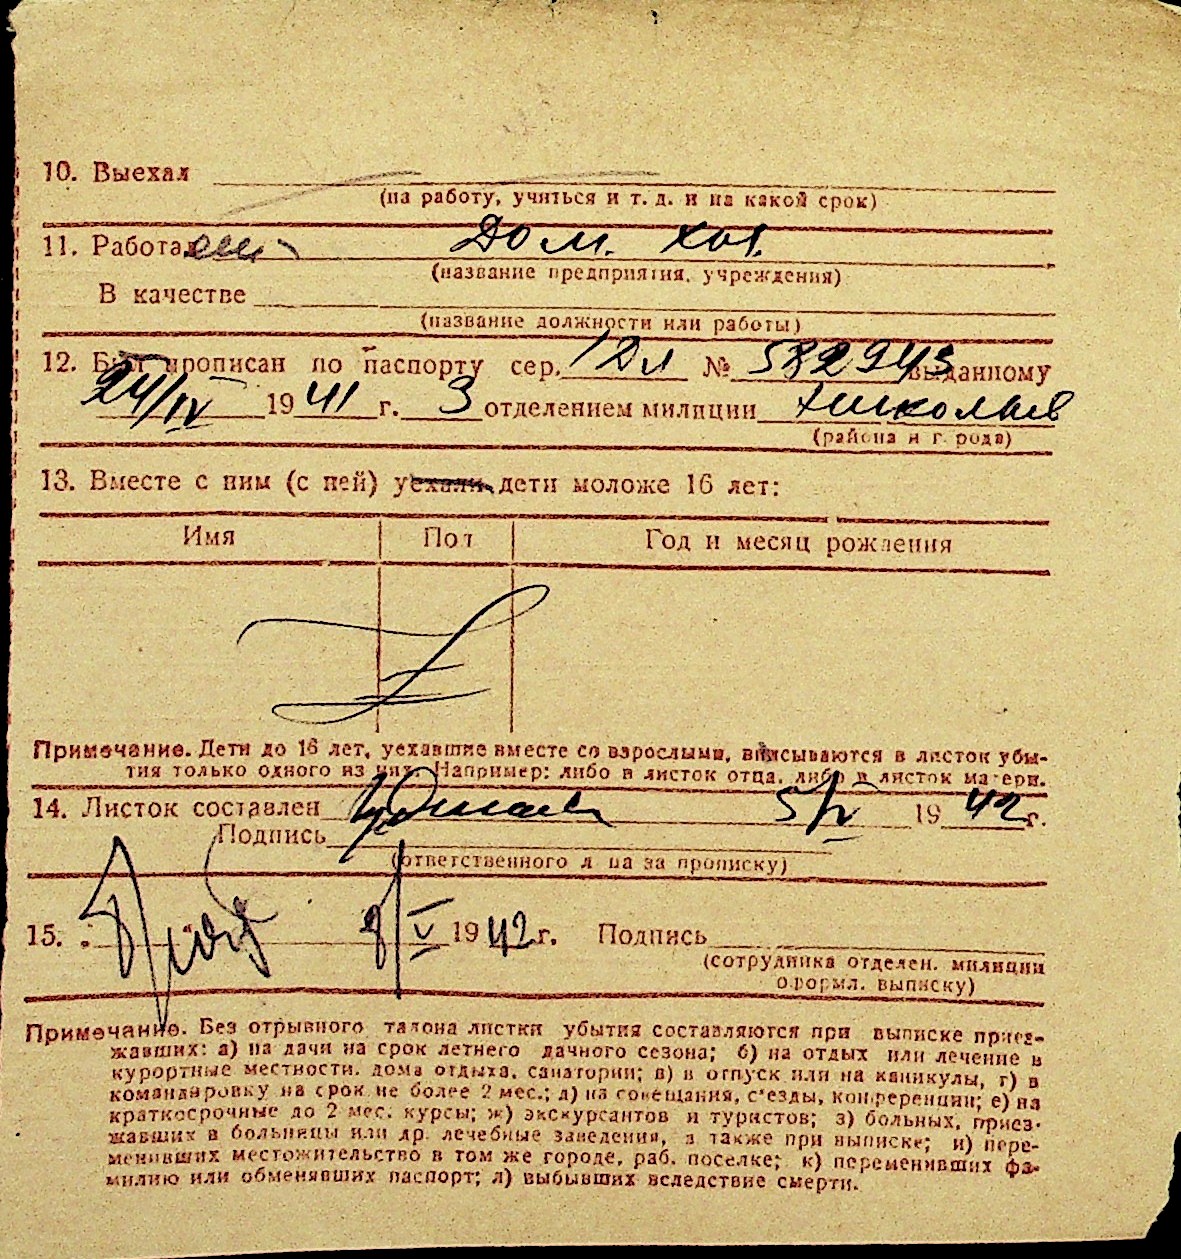 10. Выехал
(на работу, учиться и т. д. и на какой срок)
11. Работал Дом. хоз.
(название предприятия, учреждения)
В качестве
(название должности или работы)
12. Был прописан по паспорту сер. № 582943 выданному
24/IV 1941 г. 3 отделением милиции Николаев
(района и города)
13. Вместе с ним (с ней) уехали дети моложе 16 лет:
Имя Пол Год и месяц рождения
Примечание. Дети до 16 лет, уехавшие вместе со взрослыми, вписываются в листок убы-
тия только одного из них. Например: либо в листок отца, либо в листок матери.
14. Листок составлен 5/V 1942 г.
Подпись
(ответственного лица за прописку)
15. 8/V 1942 г. Подпись
(сотрудника отделен. милиции
оформл. выписку)
Примечание. Без отрывного талона листки убытия составляются при выписке приез-
жавших: а) на дачи на срок летнего дачного сезона; б) на отдых или лечение в
курортные местности, дома отдыха, санатории; в) в отпуск или на каникулы, г) в
командировку на срок не более 2 мес.; д) на совещания, с'езды, конференции; е) на
краткосрочные до 2 мес. курсы; ж) экскурсантов и туристов; з) больных, приез-
жавших в больницы или др. лечебные заведения, а также при выписке; и) пере-
менивших местожительство в том же городе, раб. поселке; к) переменивших фа-
милию или обменявших паспорт; л) выбывших вследствие смерти.